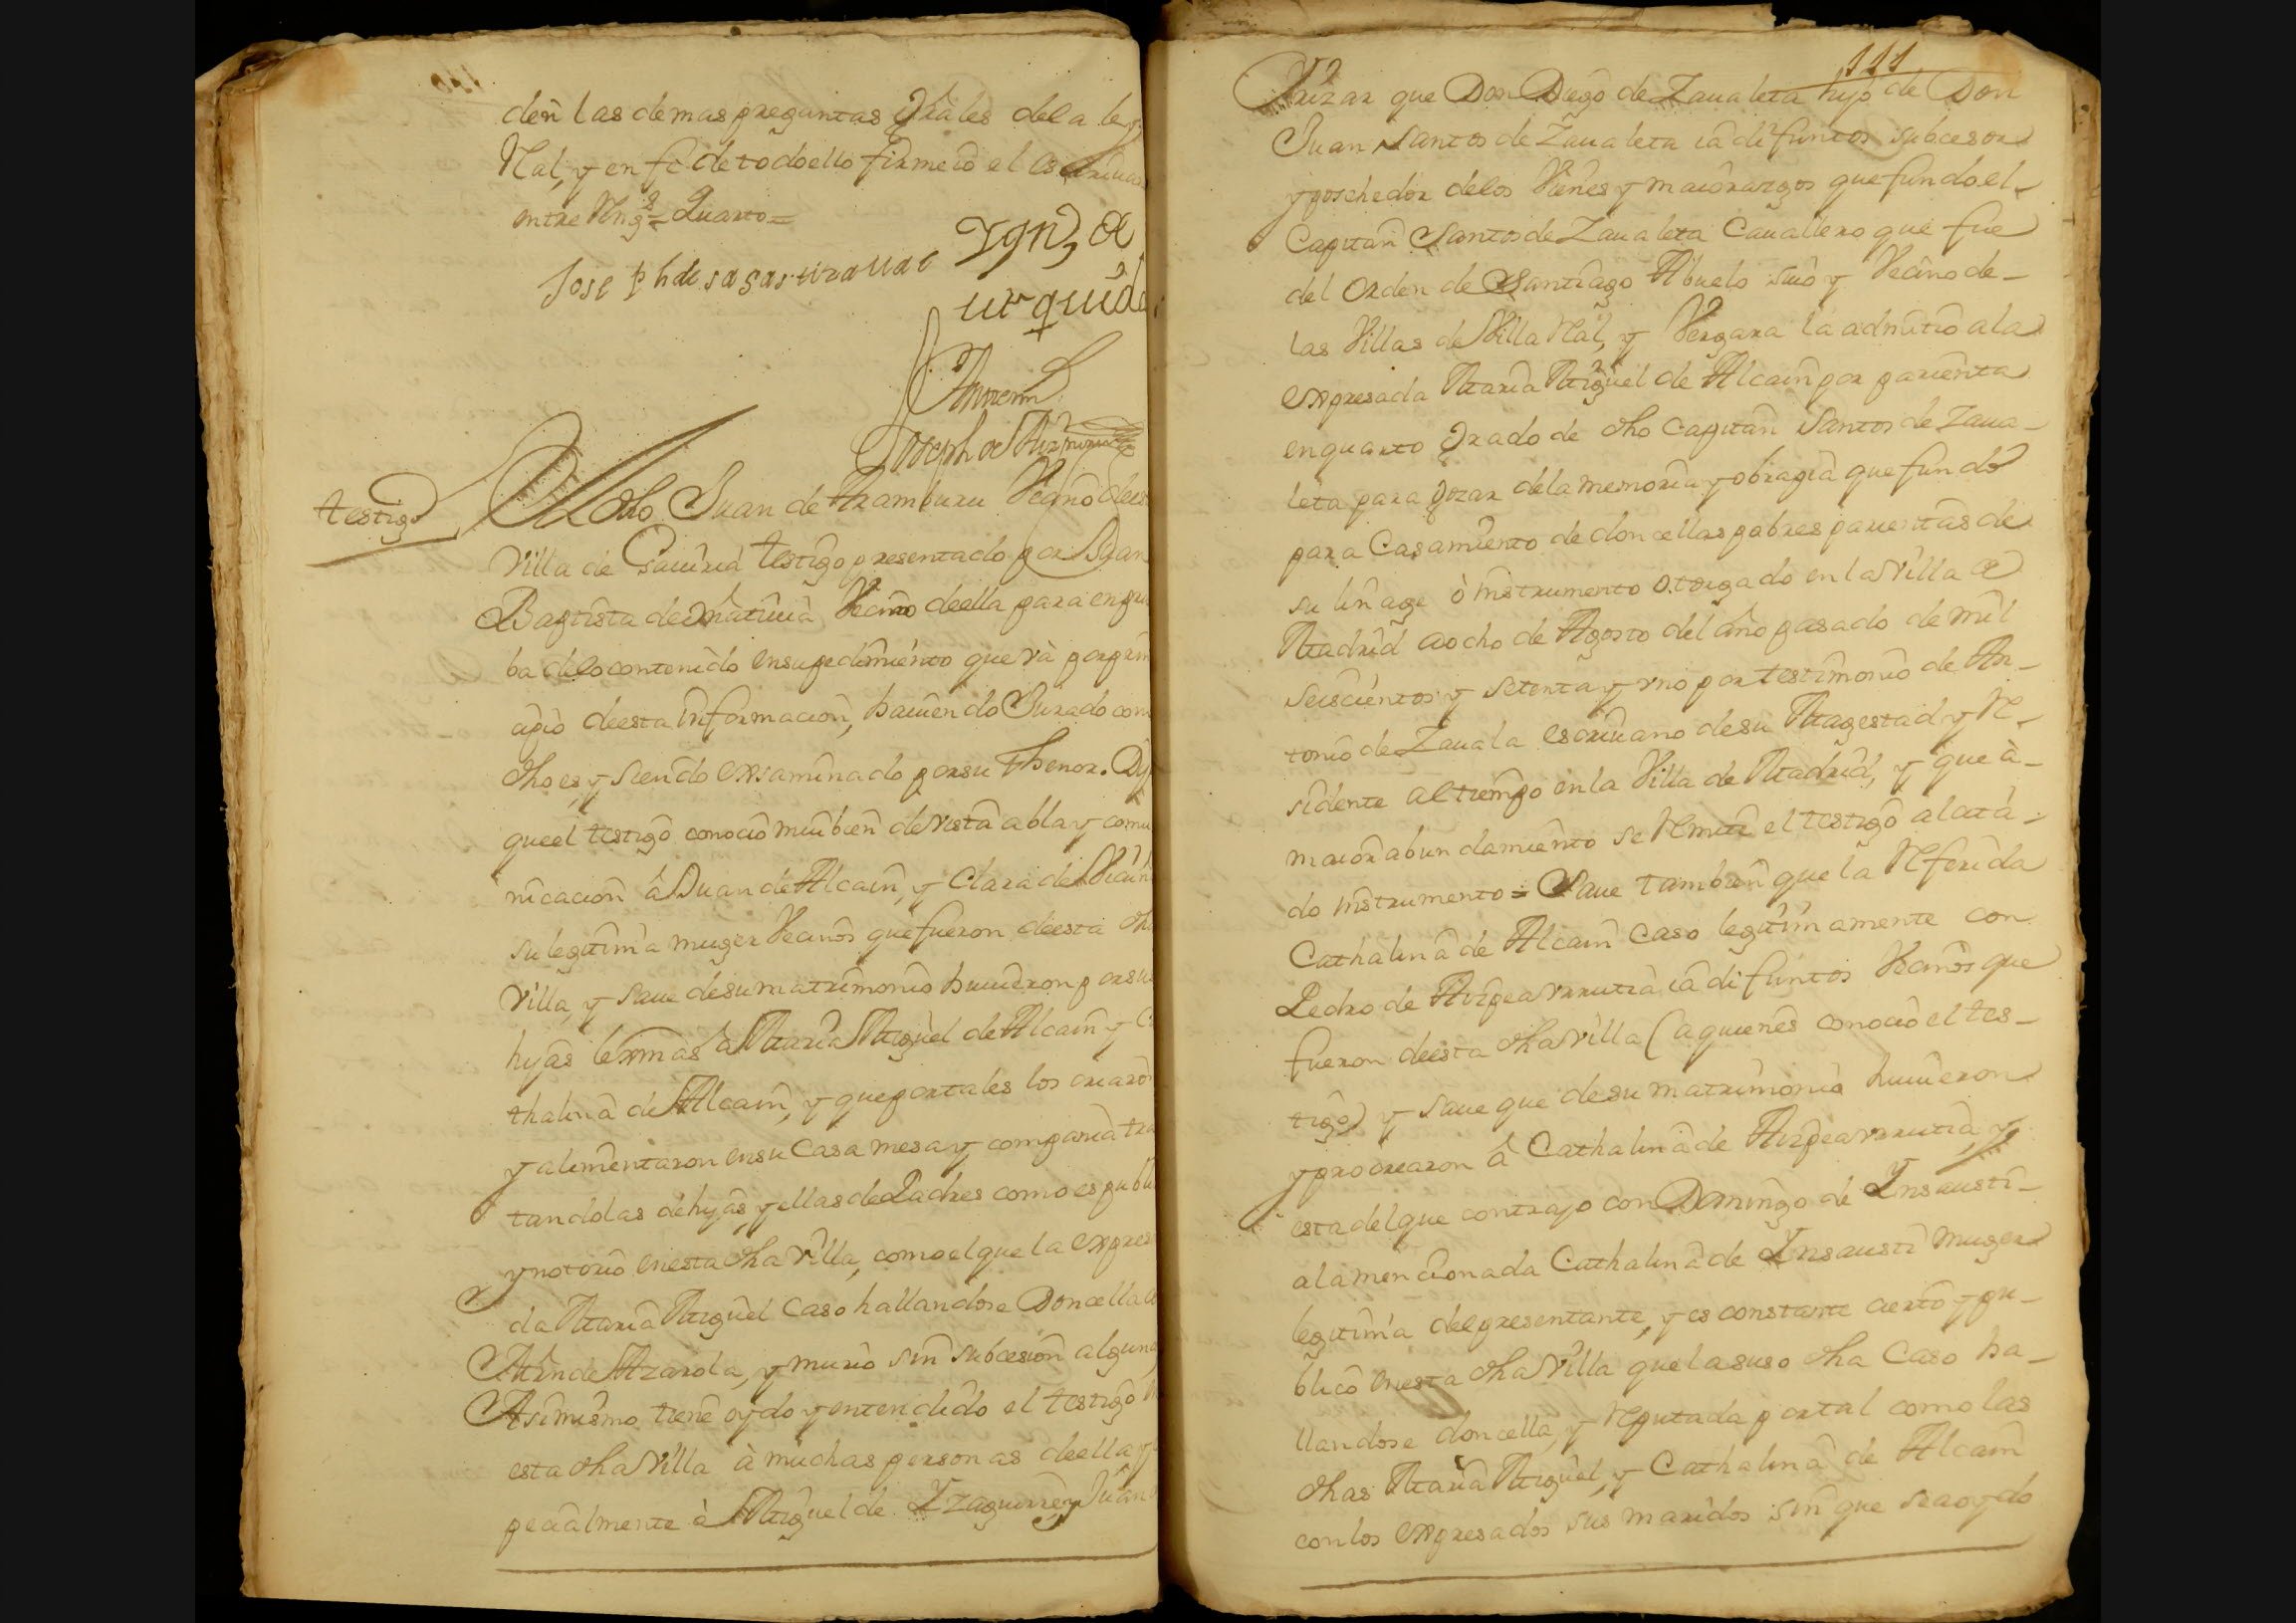 den las demas preguntas Grâles dela ley
Ral, y en fe de todo ello firme io el escriuano
entre Rengs = Quarto =
Joseph de sagastizaual Ygnº de
urquidi
Antemi
Joseph de
testigo
El dho Juan de Aramburu Vecino deesta
Villa de Gauiria testigo presentado por Juan
Baptista de Vecino deella para en prue
ba delo contenido ensu pedimiento que và por prin
cipio deesta informacion, hauiendo Jurado como
dho es, y siendo exsaminado por su thenor. Dijo
que el testigo conocio mui bien de vista abla y comu
nicacion â Juan de Alcain, y Clara de
su legitima muger Vecinos que fueron deesta dha
Villa, y saue de su matrimonio huuieron por sus
hijas lexmas â Maria Miguel de Alcain y Ca
thalina de Alcain, y que por tales los criaron
y alimentaron en su Casa mesa y compania tra
tandolas de hijas, y ellas de Padres como es publico
y notorio en esta dha Villa, como el que la expresa
da Maria Miguel caso hallandose Doncella con
Mrn de Azarola, y murio sin subcesion alguna,
Asimismo tiene oydo y entendido el testigo en
esta dha Villa à muchas personas deella, y es
pecialmente à Miguel de Yzaguirre, y Juan de
111
Yrizar que Don Diego de Zaualeta hijo de Don
Juan Santos de Zaualeta ia difuntos subcesor
y poschedor delos Vienes y maiorazgos que fundo el
Capitan Santos de Zaualeta Cauallero que fue
del orden de Santiago Abuelo suio y Vecino de
las Villas de Villa Ral, y Vergara la admitio ala
expresada Maria Miguel de Alcain por parienta
en quarto Grado de dho Capitan Santos de Zaua-
leta para gozar dela memoria y obrapia que fundo
para Casamiento de doncellas pobres parientas de
su linage ò instrumento otorgado en la Villa de
Madrid a ocho de Agosto del año pasado de mil
seiscientos y setenta y vno por testimonio de An-
tonio de Zauala escriuano de su Magestad y Re-
sidente al tiempo en la Villa de Madrid, y que à
maior abundamiento se Remite el testigo al cita-
do instrumento = Saue tambien que la Referida
Cathalina de Alcain caso legitimamente con
Pedro de Aizpeavrrutia ia difuntos Vecinos que
fueron deesta dha Villa (a quienes conocio el tes-
tigo) y saue que de su matrimonio huuieron
y procrearon â Cathalina de Aizpeavrrutia, y
esta del que contrajo con Domingo de Ynsausti
a la mencionada Cathalina de Ynsausti muger
legitima del presentante, y es constante cierto y pu-
blico en esta dha Villa que la suso dha Caso ha-
llandose doncella, y Reputada por tal como las
dhas Maria Miguel, y Cathalina de Alcain
con los expresados sus maridos sin que sea oydo